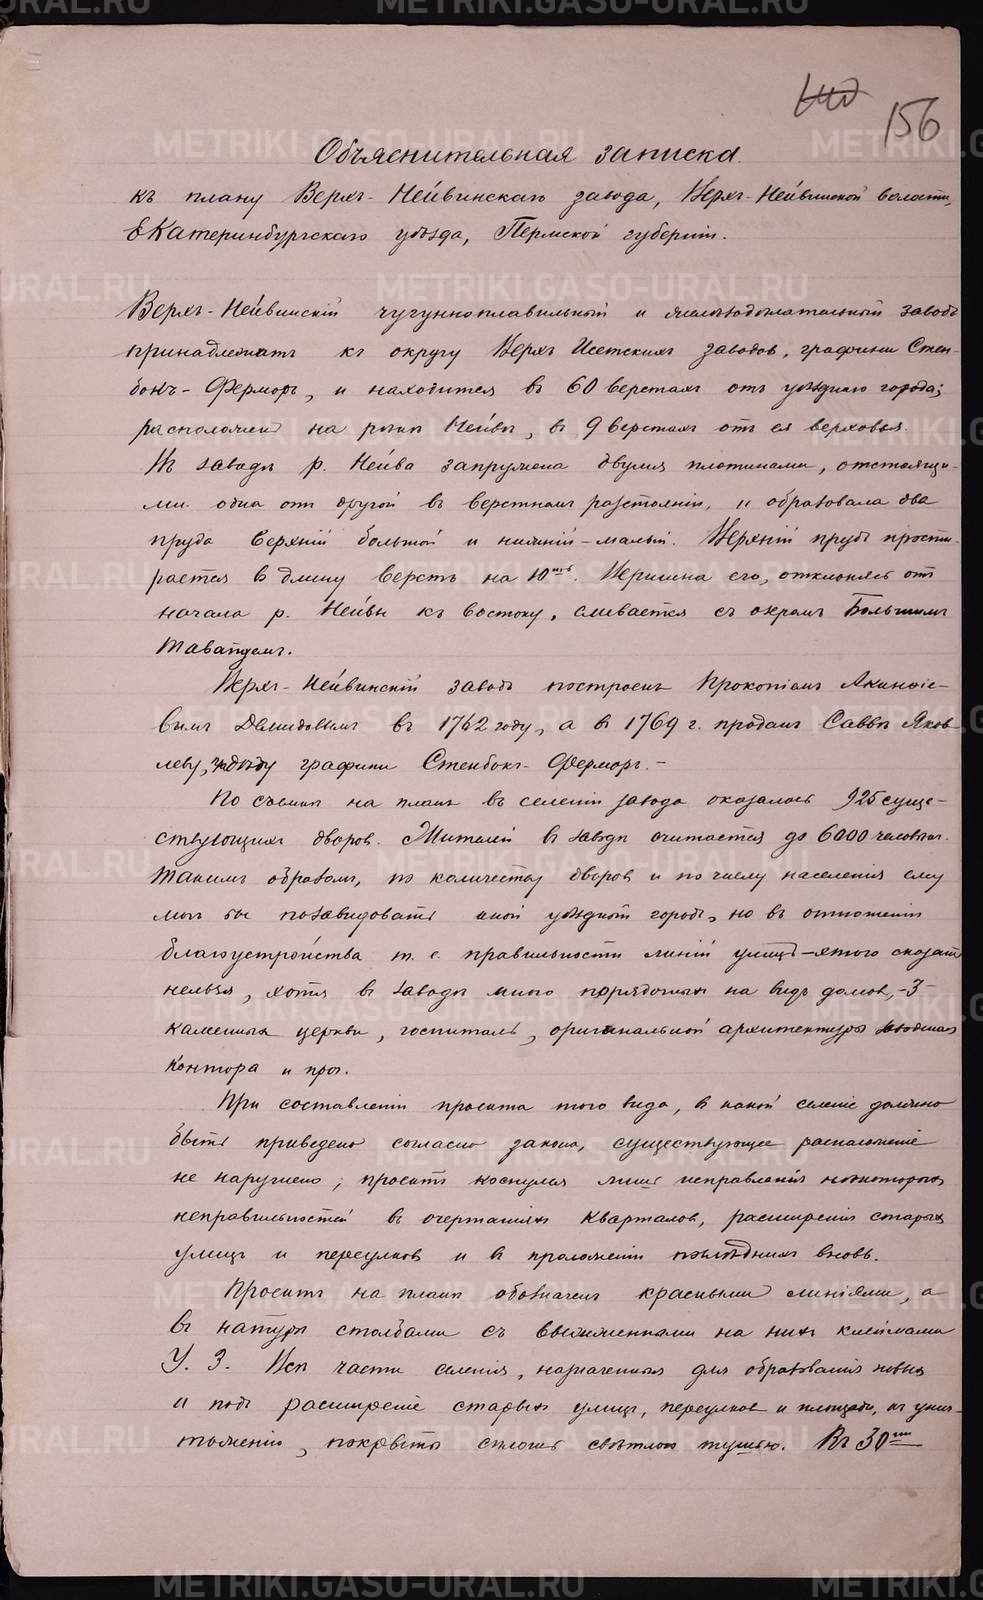 156
Объяснительная записка
къ плану Верхъ-Нейвинскаго завода, Верхъ-Нейвинской волости,
Екатеринбургскаго уѣзда, Пермской губерніи.
Верхъ-Нейвинскій чугунноплавильный и желѣзодѣлательный заводъ
принадлежитъ къ округу Верхъ Исетскихъ заводов, графини Стен-
бокъ-Ферморъ, и находится въ 60 верстахъ отъ уѣзднаго города;
расположен на рѣкѣ Нейвѣ, въ 9 верстахъ отъ ея верховья.
Въ заводѣ р. Нейва запружена двумя плотинами, отстоящи-
ми одна отъ другой въ верстномъ разстояніи, и образовала два
пруда верхній большой и нижній-малый. Верхній прудъ прости-
рается въ длину верстъ на 10ть. Вершина его, отклоняясь отъ
начала р. Нейвы къ востоку, сливается съ озеромъ Большимъ
Таватуемъ.
Верхъ-Нейвинскій заводъ построенъ Прокопіемъ Акинфіе-
вымъ Демидовымъ въ 1762 году, а въ 1769 г. проданъ Саввѣ Яков-
леву, прадѣду графини Стенбокъ-Ферморъ.-
По съемкѣ на планъ въ селеніи завода оказалось 925 суще-
ствующихъ дворов. Жителей въ заводѣ считается до 6000 человѣкъ.
Такимъ образомъ, по количеству дворов и по числу населенія ему
могъ бы позавидовать иной уѣздный городъ, но въ отношеніи
благоустройства т. е. правильности линій улицъ-этого сказать
нельзя, хотя въ заводѣ много порядочныхъ на видъ домов,-3-
каменныя церкви, госпиталь, оригинальной архитектуры заводская
контора и проч.
При составленіи проекта того вида, въ какой селеніе должно
быть приведено согласно закона, существующее расположеніе
не нарушено; проектъ коснулся лишь исправленія нѣкоторыхъ
неправильностей въ очертаніяхъ кварталов, расширенія старыхъ
улицъ и переулков и въ проложеніи послѣднихъ вновь.
Проектъ на планѣ обозначенъ красными линіями, а
въ натурѣ столбами съ выжженными на нихъ клеймами
У. З. Всѣ части селенія, назначенныя для образованія новыхъ
и подъ расширеніе старыхъ улицъ, переулков и площади, къ унич-
тоженію, покрыты сплошь свѣтлою тушью. Въ 30ти
METRIKI.GASO-URAL.RU